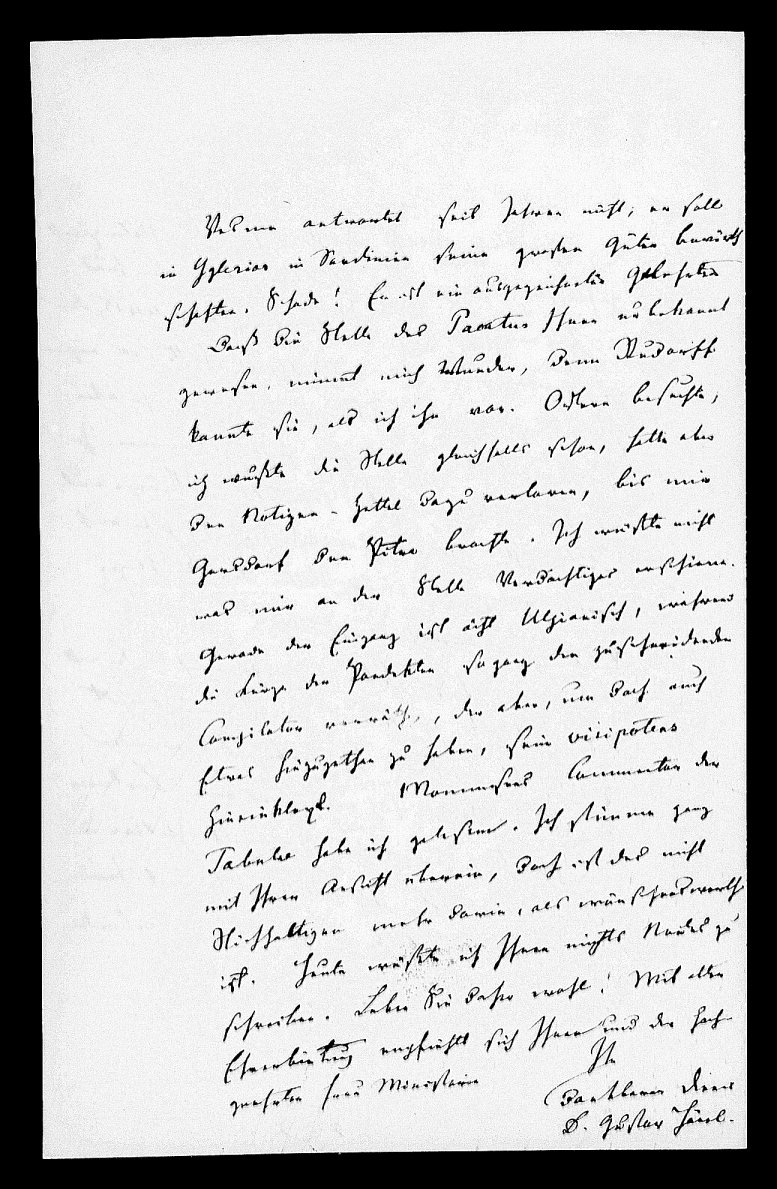 Vesme antwortet seit Jahren nicht; er soll
in Yglesias in Sardinien seine großen Güter bewirth
schaften. Schade! Er ist ein ausgezeichneter Gelehrter
Daß die Stelle des Pacatus Ihnen unbekannt
gewesen, nimmt mich Wunder, denn Rudorff
kannte sie, als ich ihn vor. Ostern besuchte,
ich wußte die Stelle gleichfalls schon, hatte aber
den Notizen-Zettel dazu verloren, bis mir
Gersdorf den Pitra brachte. Ich wüßte nicht
was mir an der Stelle Verdächtiges erschiene.
Gerade der Eingang ist ächt Ulpianisch, während
die Kürze der Pandekten so ganz den zuschneidenden
Compilator verräth, der aber, um doch auch
Etwas hinzugethan zu haben, sein
hineinklext. Mommsens Commentar der
Tabulae habe ich gelesen. Ich stimme ganz
mit Ihrer Ansicht überein, doch ist des nicht
Stichhaltigen mehr darin, als wünschenswerth
ist. Heute wüßte ich Ihnen nichts Neues zu
schreiben. Leben Sie daher wohl! Mit aller
Ehrerbietung empfiehlt sich Ihnen und der hoch
geehrten Frau Ministerin
Ihr
dankbarer Diener
D. Gustav Hänel.